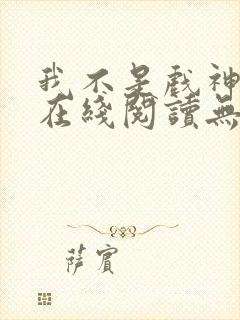 我不是戲神
在綫閱讀無
薩賓